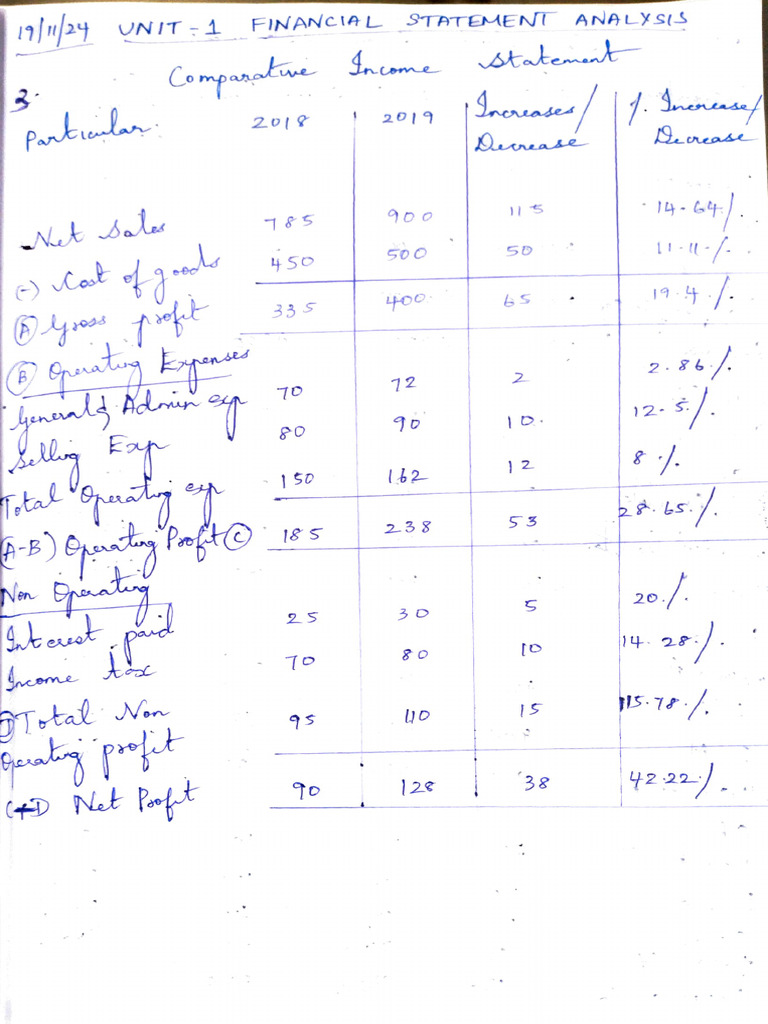 19/11/24 UNIT - 1 FINANCIAL STATEMENT ANALYSIS
Comparative Income Statement
3.
Particular 2018 2019 Increases/ Decrease % Increase/ Decrease
Net Sales 785 900 115 14.64%
(-) Cost of goods 450 500 50 11.11%
(A) Gross profit 335 400 65 19.4%
(B) Operating Expenses
General & Admin exp 70 72 2 2.86%
Selling Exp 80 90 10 12.5%
Total Operating exp 150 162 12 8%
(A-B) Operating Profit (C) 185 238 53 28.65%
Non Operating
Interest paid 25 30 5 20%
Income tax 70 80 10 14.28%
(D) Total Non 95 110 15 115.78%
Operating profit
Net Profit 90 128 38 42.22%